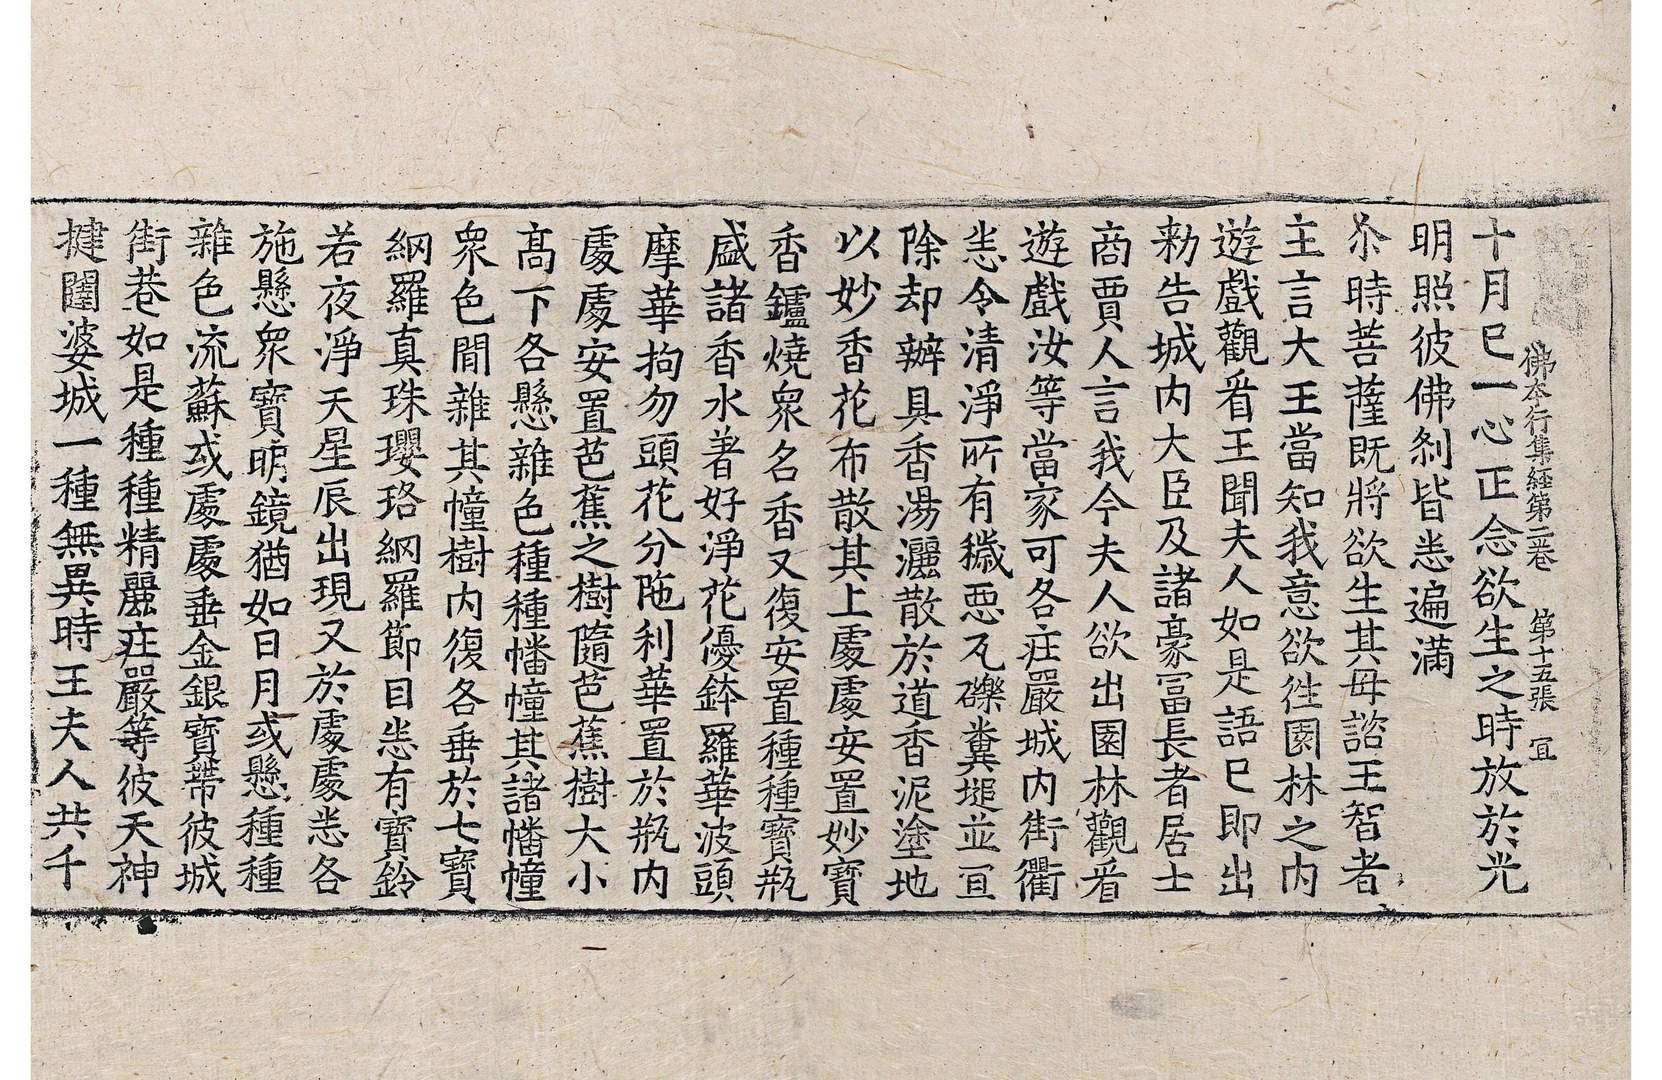 佛本行集経第二卷 第十五張 宜
十月已一心正念欲生之時放於光
明照彼佛剎皆悉遍滿
尒時菩薩既將欲生其母諮王智者
主言大王當知我意欲往園林之内
遊戲觀看王聞夫人如是語已即出
勑告城内大臣及諸豪冨長者居士
商賈人言我今夫人欲出園林觀看
遊戲汝等當家可各庄嚴城内街衢
悉令清淨所有穢惡瓦礫糞塠並冝
除却辦具香湯灑散於道香泥塗地
以妙香花布散其上處處安置妙寶
香鑪燒衆名香又復安置種種寶瓶
盛諸香水著好淨花優鉢羅華波頭
摩華拘勿頭花分陁利華置於瓶内
處處安置芭蕉之樹隨芭蕉樹大小
髙下各懸雜色種種幡幢其諸幡幢
衆色間雜其幢樹内復各垂於七寶
網羅真珠瓔珞網羅節目悉有寶鈴
若夜淨天星辰出現又於處處悉各
施懸衆寶明鏡猶如日月或懸種種
雜色流蘇或處處垂金銀寶帶彼城
街巷如是種種精麗庄嚴等彼天神
揵闥婆城一種無異時王夫人共千